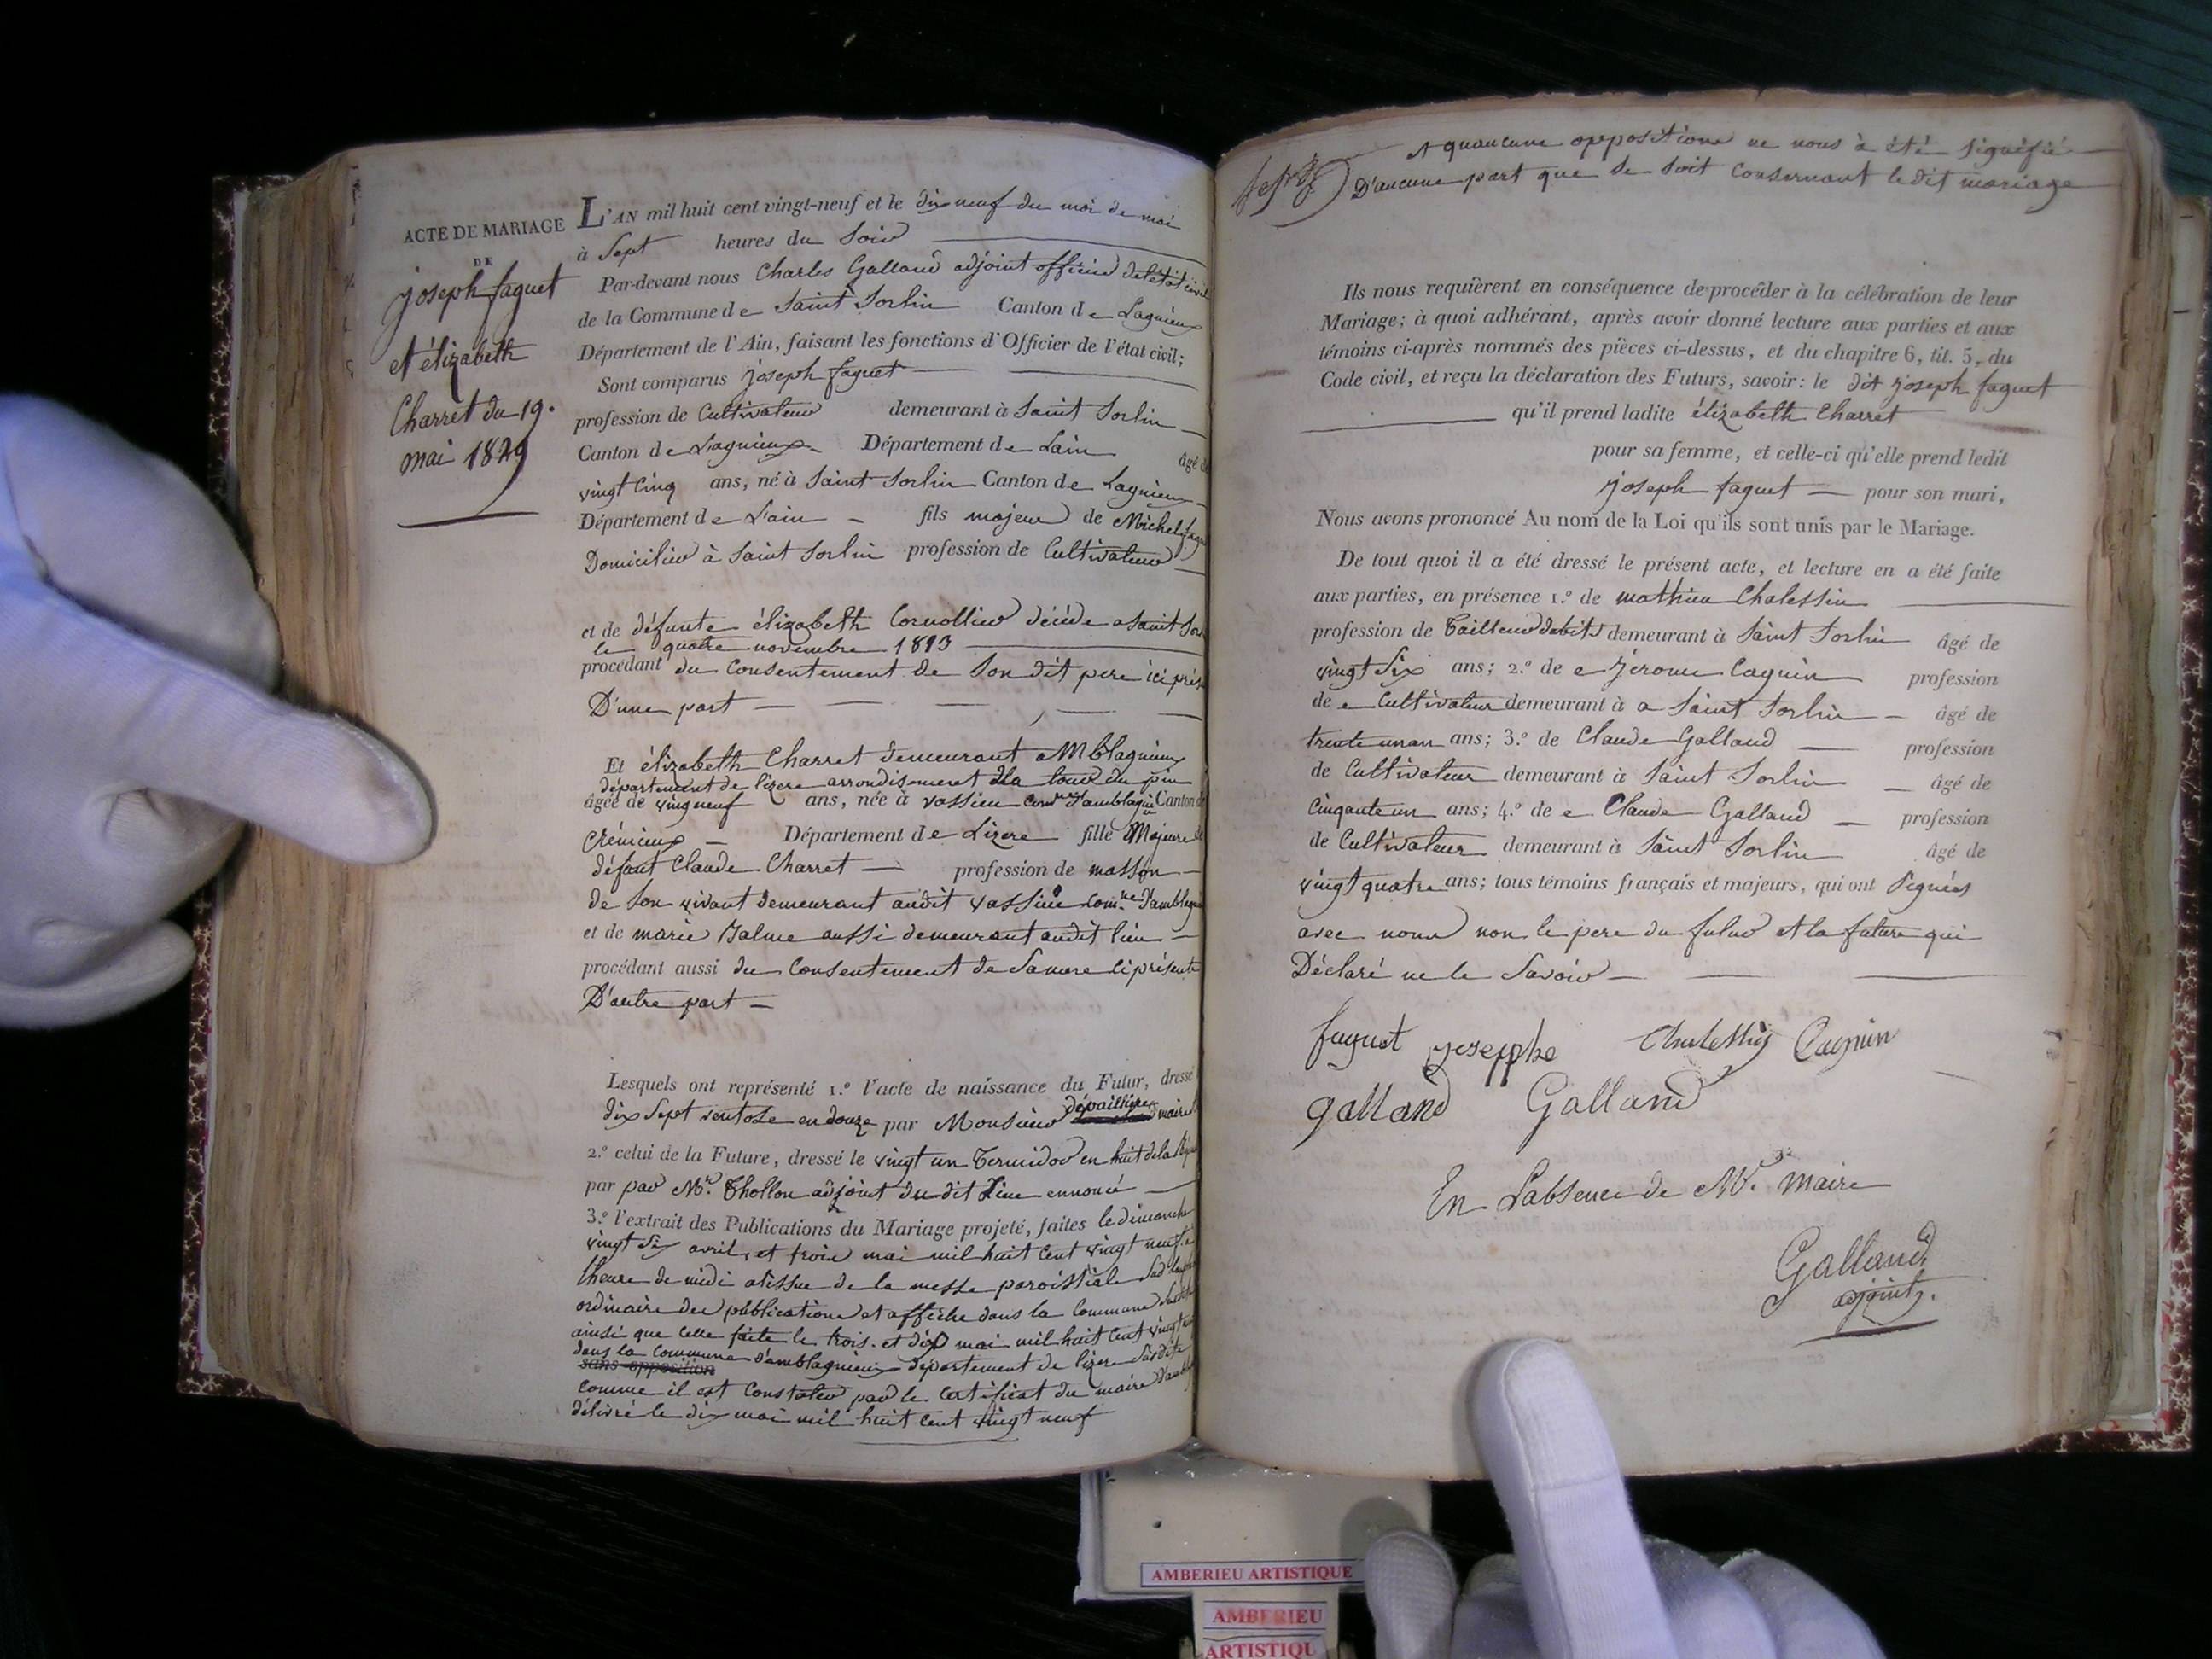 ACTE DE MARIAGE
DE
joseph faguet
et élizabeth
Charret du 19.
mai 1829
L'AN mil huit cent vingt-neuf et le dix neuf du moi de mai
à Sept heures du Soir
Par-devant nous Charles Galland adjoint officier deletat civil
de la Commune de Saint Sorlin Canton de Lagnieux
Département de l'Ain, faisant les fonctions d'Officier de l'état civil;
Sont comparus joseph faguet
profession de Cultivateur demeurant à Saint Sorlin
Canton de Lagnieux Département de Lain âgé de
vingt Cinq ans, né à Saint Sorlin Canton de Lagnieux
Département de L'ain fils majeur de Michel
Domicilier à Saint Sorlin profession de Cultivateur
et de défunte élizabeth Cornollier décéde a Saint
le quatre novembre 1813
procédant du Consentement de Son dit pere ici
D'une part
Et élizabeth Charret demeurant a Mblagnieux
département de lizere arrondisement dela tour du pin
âgée de vingneuf ans, née à vassieu Canton de
Crémieux Département de Lizere fille Majeure de
défunt Claude Charret profession de masson
de Son vivant demeurant audit vassieu
et de marie Jalme aussi demeurant audit lieu
procédant aussi du Consentement de Samere ciprésente
D'autre part
Lesquels ont représenté 1.º l'acte de naissance du Futur, dressé
dix Sept ventose en douze par Monsieur dépaillière maire
2.º celui de la Future, dressé le vingt un Termidor en huit dela
par par Mr. Thollon adjoint du dit Lieu ennoncé
3.º l'extrait des Publications du Mariage projeté, faites le dimanche
vingt Six avril, et trois mai mil huit Cent vingt neuf
lheure de midi alissue de la messe paroissiale
ordinaire des publications et affiche dans la Commune
ainsi que Celle faite le trois. et dix mai mil huit Cent
dans la Commune d'amblagnieux département de lizere Susdite
sans opposition
Comme il est Constater par le Certificat du maire
délivré le dix mai mil huit Cent vingt neuf
A quaucune oppositions ne nous à été Signéfié
D'aucune part que Se Soit Consernant ledit mariage
Ils nous requièrent en conséquence de procéder à la célébration de leur
Mariage; à quoi adhérant, après avoir donné lecture aux parties et aux
témoins ci-après nommés des pièces ci-dessus, et du chapitre 6, tit. 5, du
Code civil, et reçu la déclaration des Futurs, savoir: le dit joseph faguet
qu'il prend ladite élizabeth Charret
pour sa femme, et celle-ci qu'elle prend ledit
joseph faguet pour son mari,
Nous avons prononcé Au nom de la Loi qu'ils sont unis par le Mariage.
De tout quoi il a été dressé le présent acte, et lecture en a été faite
aux parties, en présence 1.º de mathieu Chalessin
profession de Tailleur dabits demeurant à Saint Sorlin âgé de
vingt Six ans; 2.º de e jérome Cagnin profession
de e Cultivateur demeurant à a Saint Sorlin âgé de
trente unan ans; 3.º de Claude Galland profession
de Cultivateur demeurant à Saint Sorlin âgé de
Cinqante un ans; 4.º de e Claude Galland profession
de Cultivateur demeurant à Saint Sorlin âgé de
vingt quatre ans; tous témoins français et majeurs, qui ont Signées
avec nous non le pere du futur et la future qui
Déclaré ne le Savoir
faguet josepphe Chalessin Cagnin
galland Galland
En Labsence de Mr. Maire
Galland
adjoint.
AMBERIEU ARTISTIQUE
AMBERIEU
ARTISTIQU